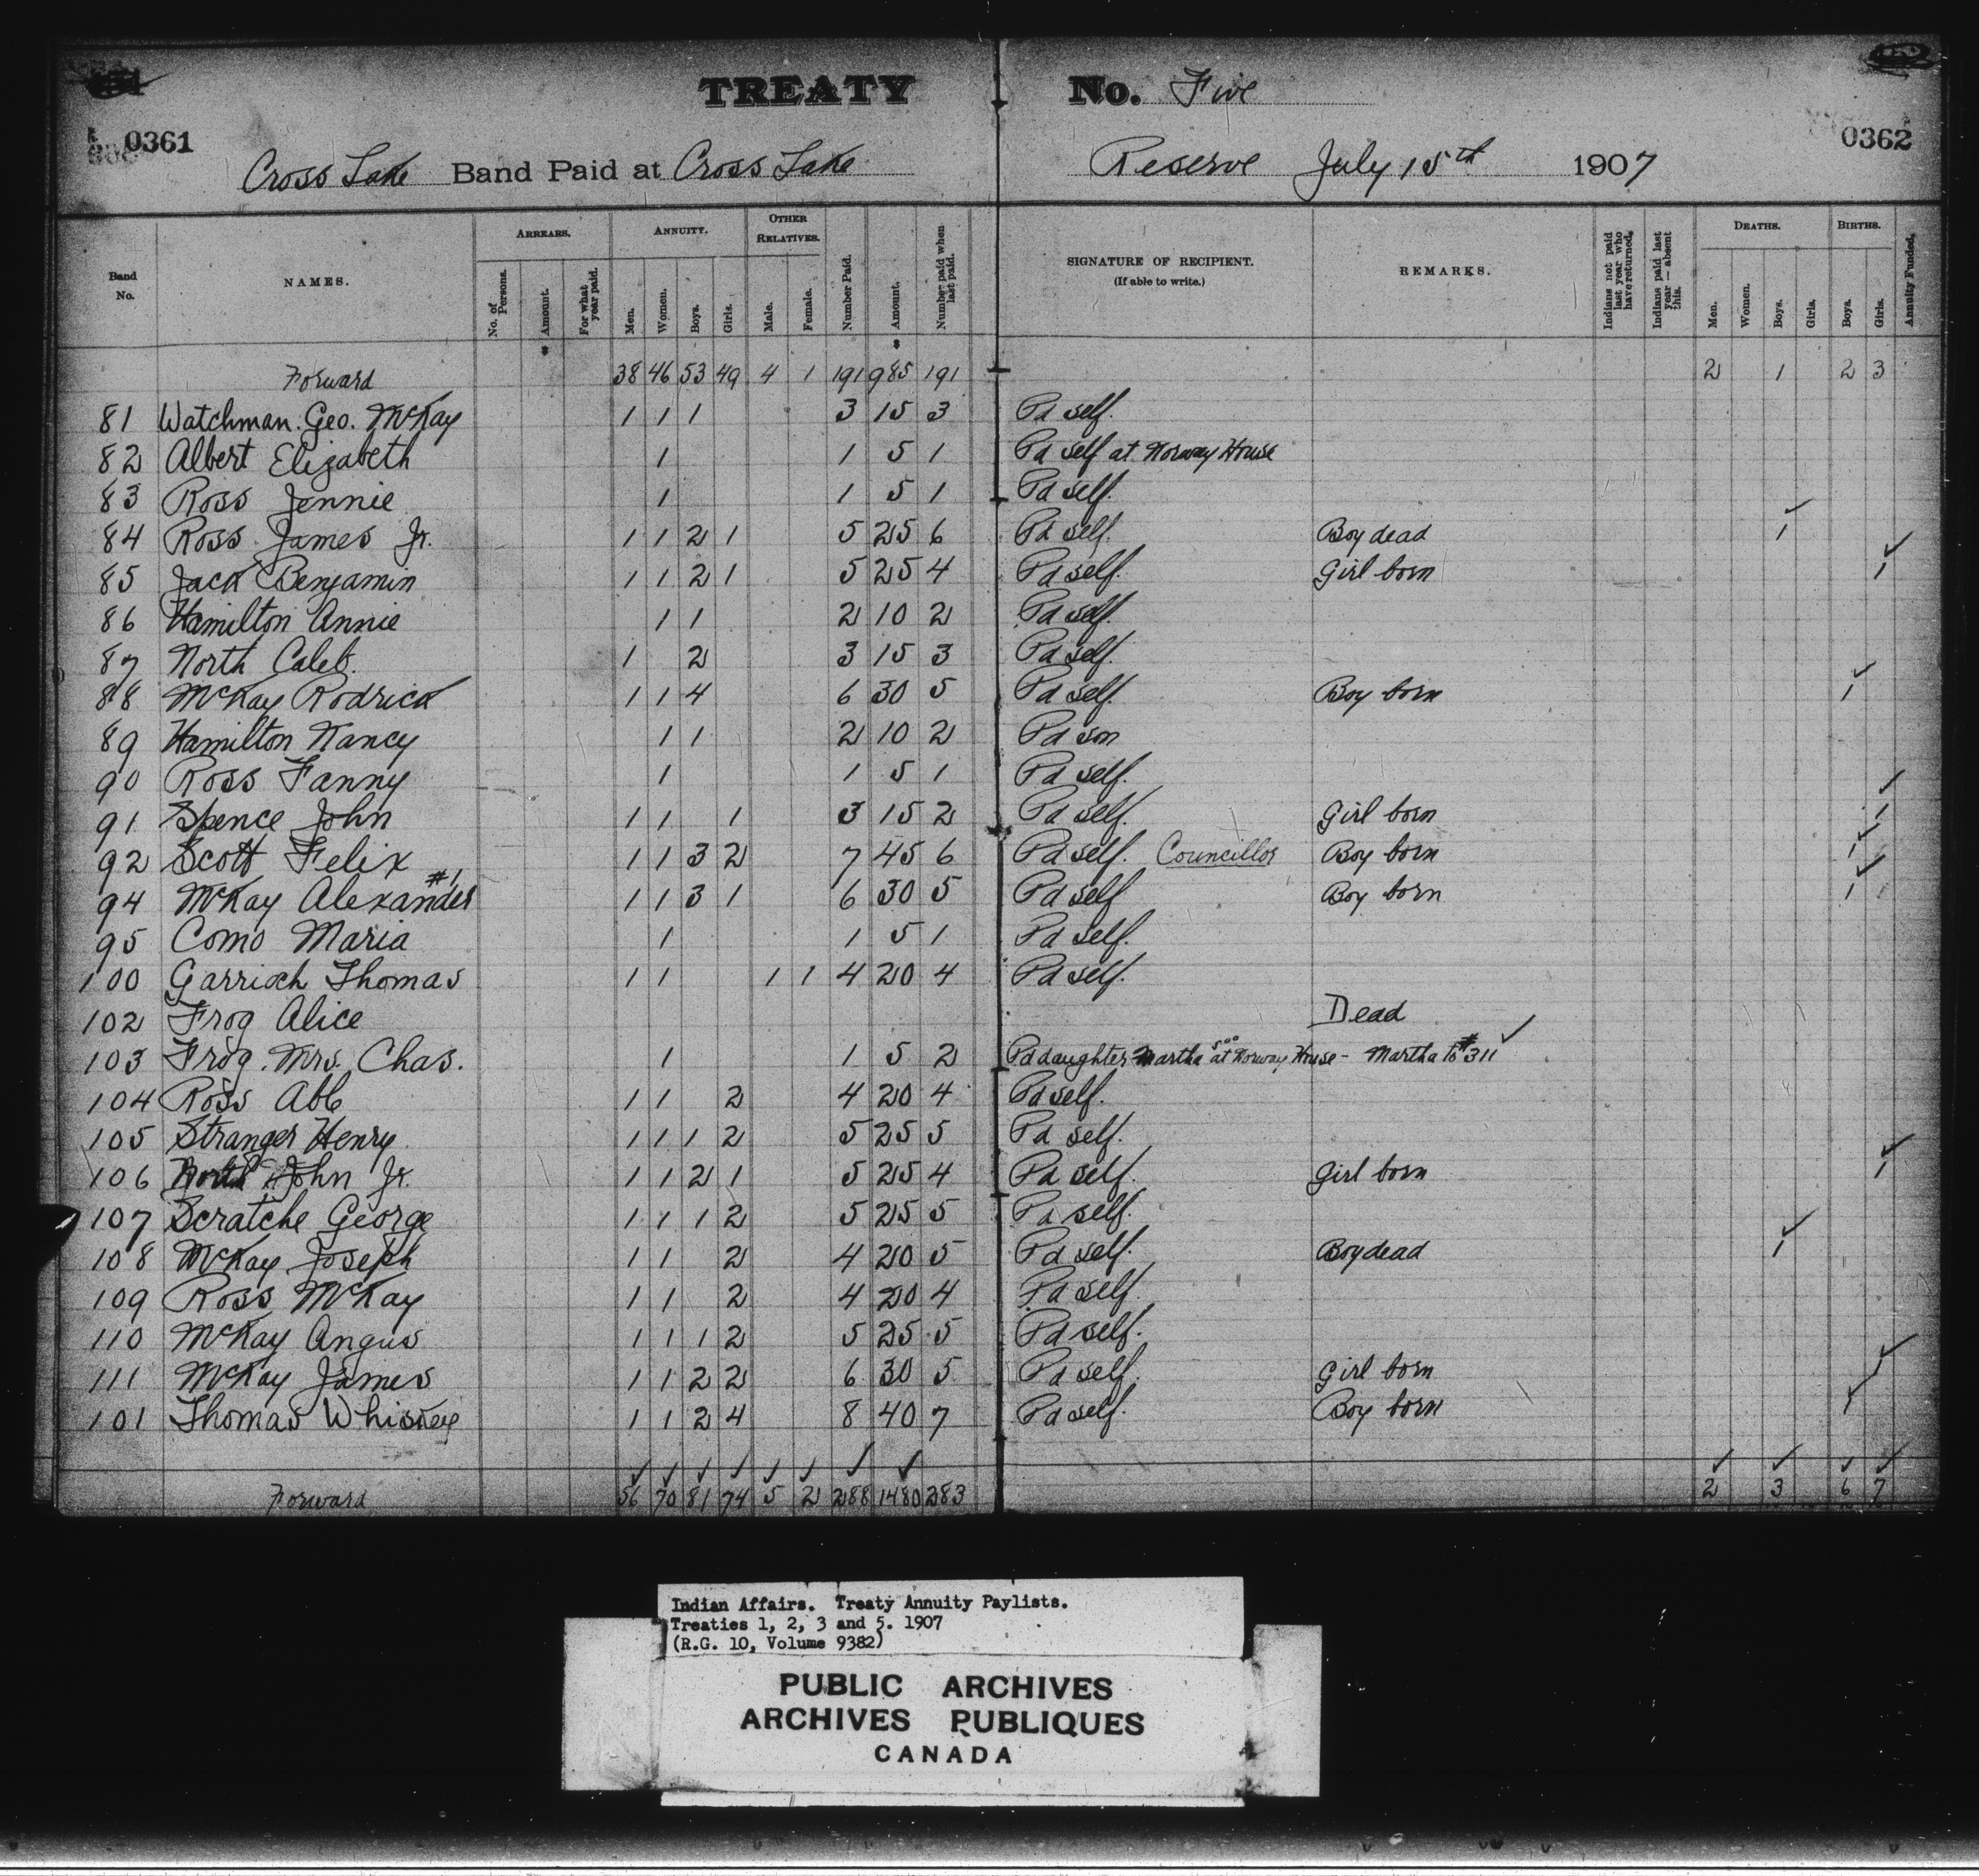 TREATY No. Five
0361 0362
Cross Lake Band Paid at Cross Lake Reserve July 15th 1907
Band No. NAMES. ARREARS. No. of Persons. Amount. For what year paid. ANNUITY. Men. Women. Boys. Girls. OTHER RELATIVES. Male. Female. Number Paid. Amount. Number paid when last paid. SIGNATURE OF RECIPIENT. (If able to write.) REMARKS. Indians not paid last year who have returned. Indians paid last year—absent this. DEATHS. Men. Women. Boys. Girls. BIRTHS. Boys. Girls. Annuity Funded.
Forward 38 46 53 49 4 1 191 985 191 2 1 2 3
81 Watchman. Geo. McKay 1 1 1 3 15 3 Pd self.
82 Albert Elizabeth 1 1 5 1 Pd self at Norway House
83 Ross Jennie 1 1 5 1 Pd self.
84 Ross James Jr. 1 1 2 1 5 25 6 Pd self. Boy dead 1
85 Jack Benjamin 1 1 2 1 5 25 4 Pd self. Girl born 1
86 Hamilton Annie 1 1 2 10 2 Pd self.
87 North Caleb. 1 2 3 15 3 Pd self.
88 McKay Rodrick 1 1 4 6 30 5 Pd self. Boy born 1
89 Hamilton Nancy 1 1 2 10 2 Pd son
90 Ross Fanny 1 1 5 1 Pd self.
91 Spence John 1 1 1 3 15 2 Pd self. Girl born 1
92 Scott Felix 1 1 3 2 7 45 6 Pd self. Councillor Boy born 1
94 McKay Alexander #1 1 1 3 1 6 30 5 Pd self Boy born 1
95 Como Maria 1 1 5 1 Pd self.
100 Garrioch Thomas 1 1 1 1 4 20 4 Pd self.
102 Frog Alice Dead
103 Frog. Mrs. Chas. 1 1 5 2 Pd daughter Martha 5.00 at Norway House - Martha to #311
104 Ross Able 1 1 2 4 20 4 Pd self.
105 Stranger Henry 1 1 1 2 5 25 5 Pd self.
106 North John Jr. 1 1 2 1 5 25 4 Pd self. Girl born 1
107 Scratche George 1 1 1 2 5 25 5 Pd self.
108 McKay Joseph 1 1 2 4 20 5 Pd self. Boy dead 1
109 Ross McKay 1 1 2 4 20 4 Pd self.
110 McKay Angus 1 1 1 2 5 25 5 Pd self.
111 McKay James 1 1 2 2 6 30 5 Pd self. Girl born
101 Thomas Whiskey 1 1 2 4 8 40 7 Pd self. Boy born 1
Forward 56 70 81 74 5 2 288 1480 283 2 3 6 7
Indian Affairs. Treaty Annuity Paylists.
Treaties 1, 2, 3 and 5. 1907
(R.G. 10, Volume 9382)
PUBLIC ARCHIVES
ARCHIVES PUBLIQUES
CANADA